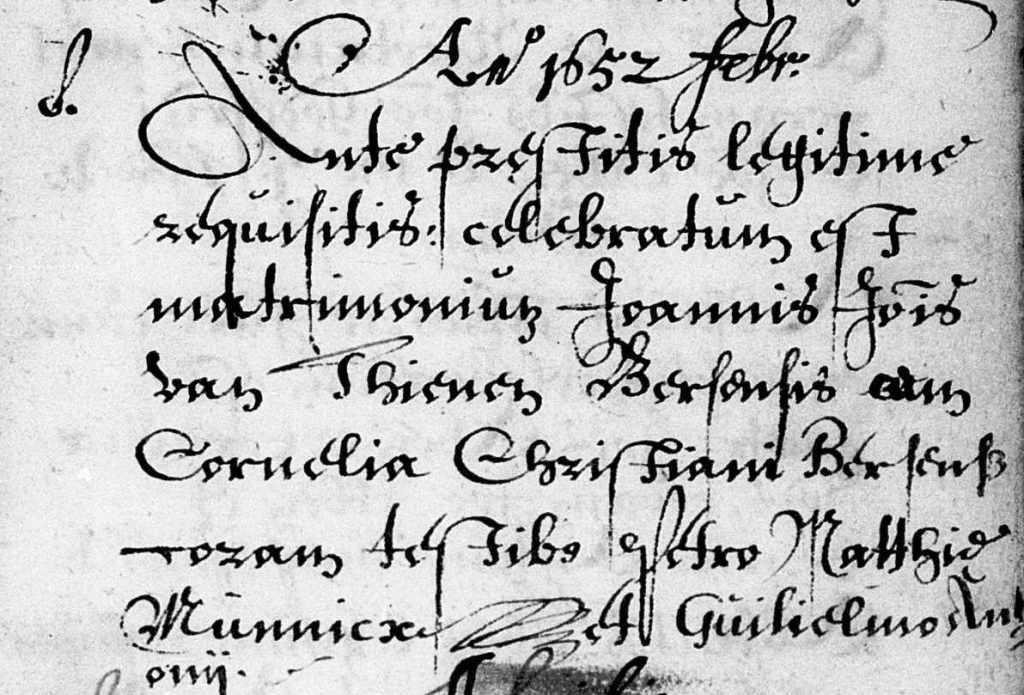 Aº 1652 febr.
8. Ante prestitis legitime
requisitis: celebratum est
matrimonium Joannis Jōis
van Thienen Bersensis cum
Cornelia Christiani Bersens
coram testibs Petro Matthię
Munnicx et Guilielmo Ant
onij.